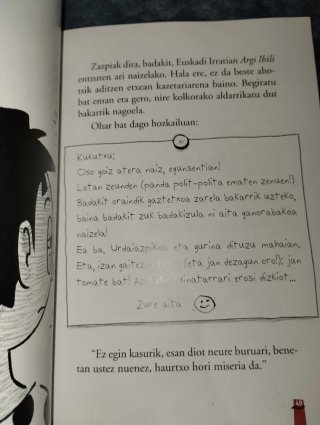 Zazpiak dira, badakit, Euskadi Irratian Argi Ibili
entzuten ari naizelako. Hala ere, ez da beste aho-
tsik aditzen etxean kazetariarena baino. Begiratu
bat eman eta gero, nire kolkorako aldarrikatu dut
bakarrik nagoela.
Ohar bat dago hozkailuan:
Kukutxu:
Oso goiz atera naiz, egunsentian!
Lotan zeunden (panda polit-polita ematen zenuen!)
Badakit oraindik gaztetxoa zarela bakarrik uzteko,
baina badakit zuk badakizula ni aita ganorabakoa
naizela!
Ea ba. Urdaiazpikoa eta gurina dituzu mahaian.
Eta, izan gaitezen (eta jan dezagun oro!), jan
tomate bat! erosi dizkiot...
Zure aita
"Ez egin kasurik, esan diot neure buruari, bene-
tan ustez nuenez, haurtxo hori miseria da."